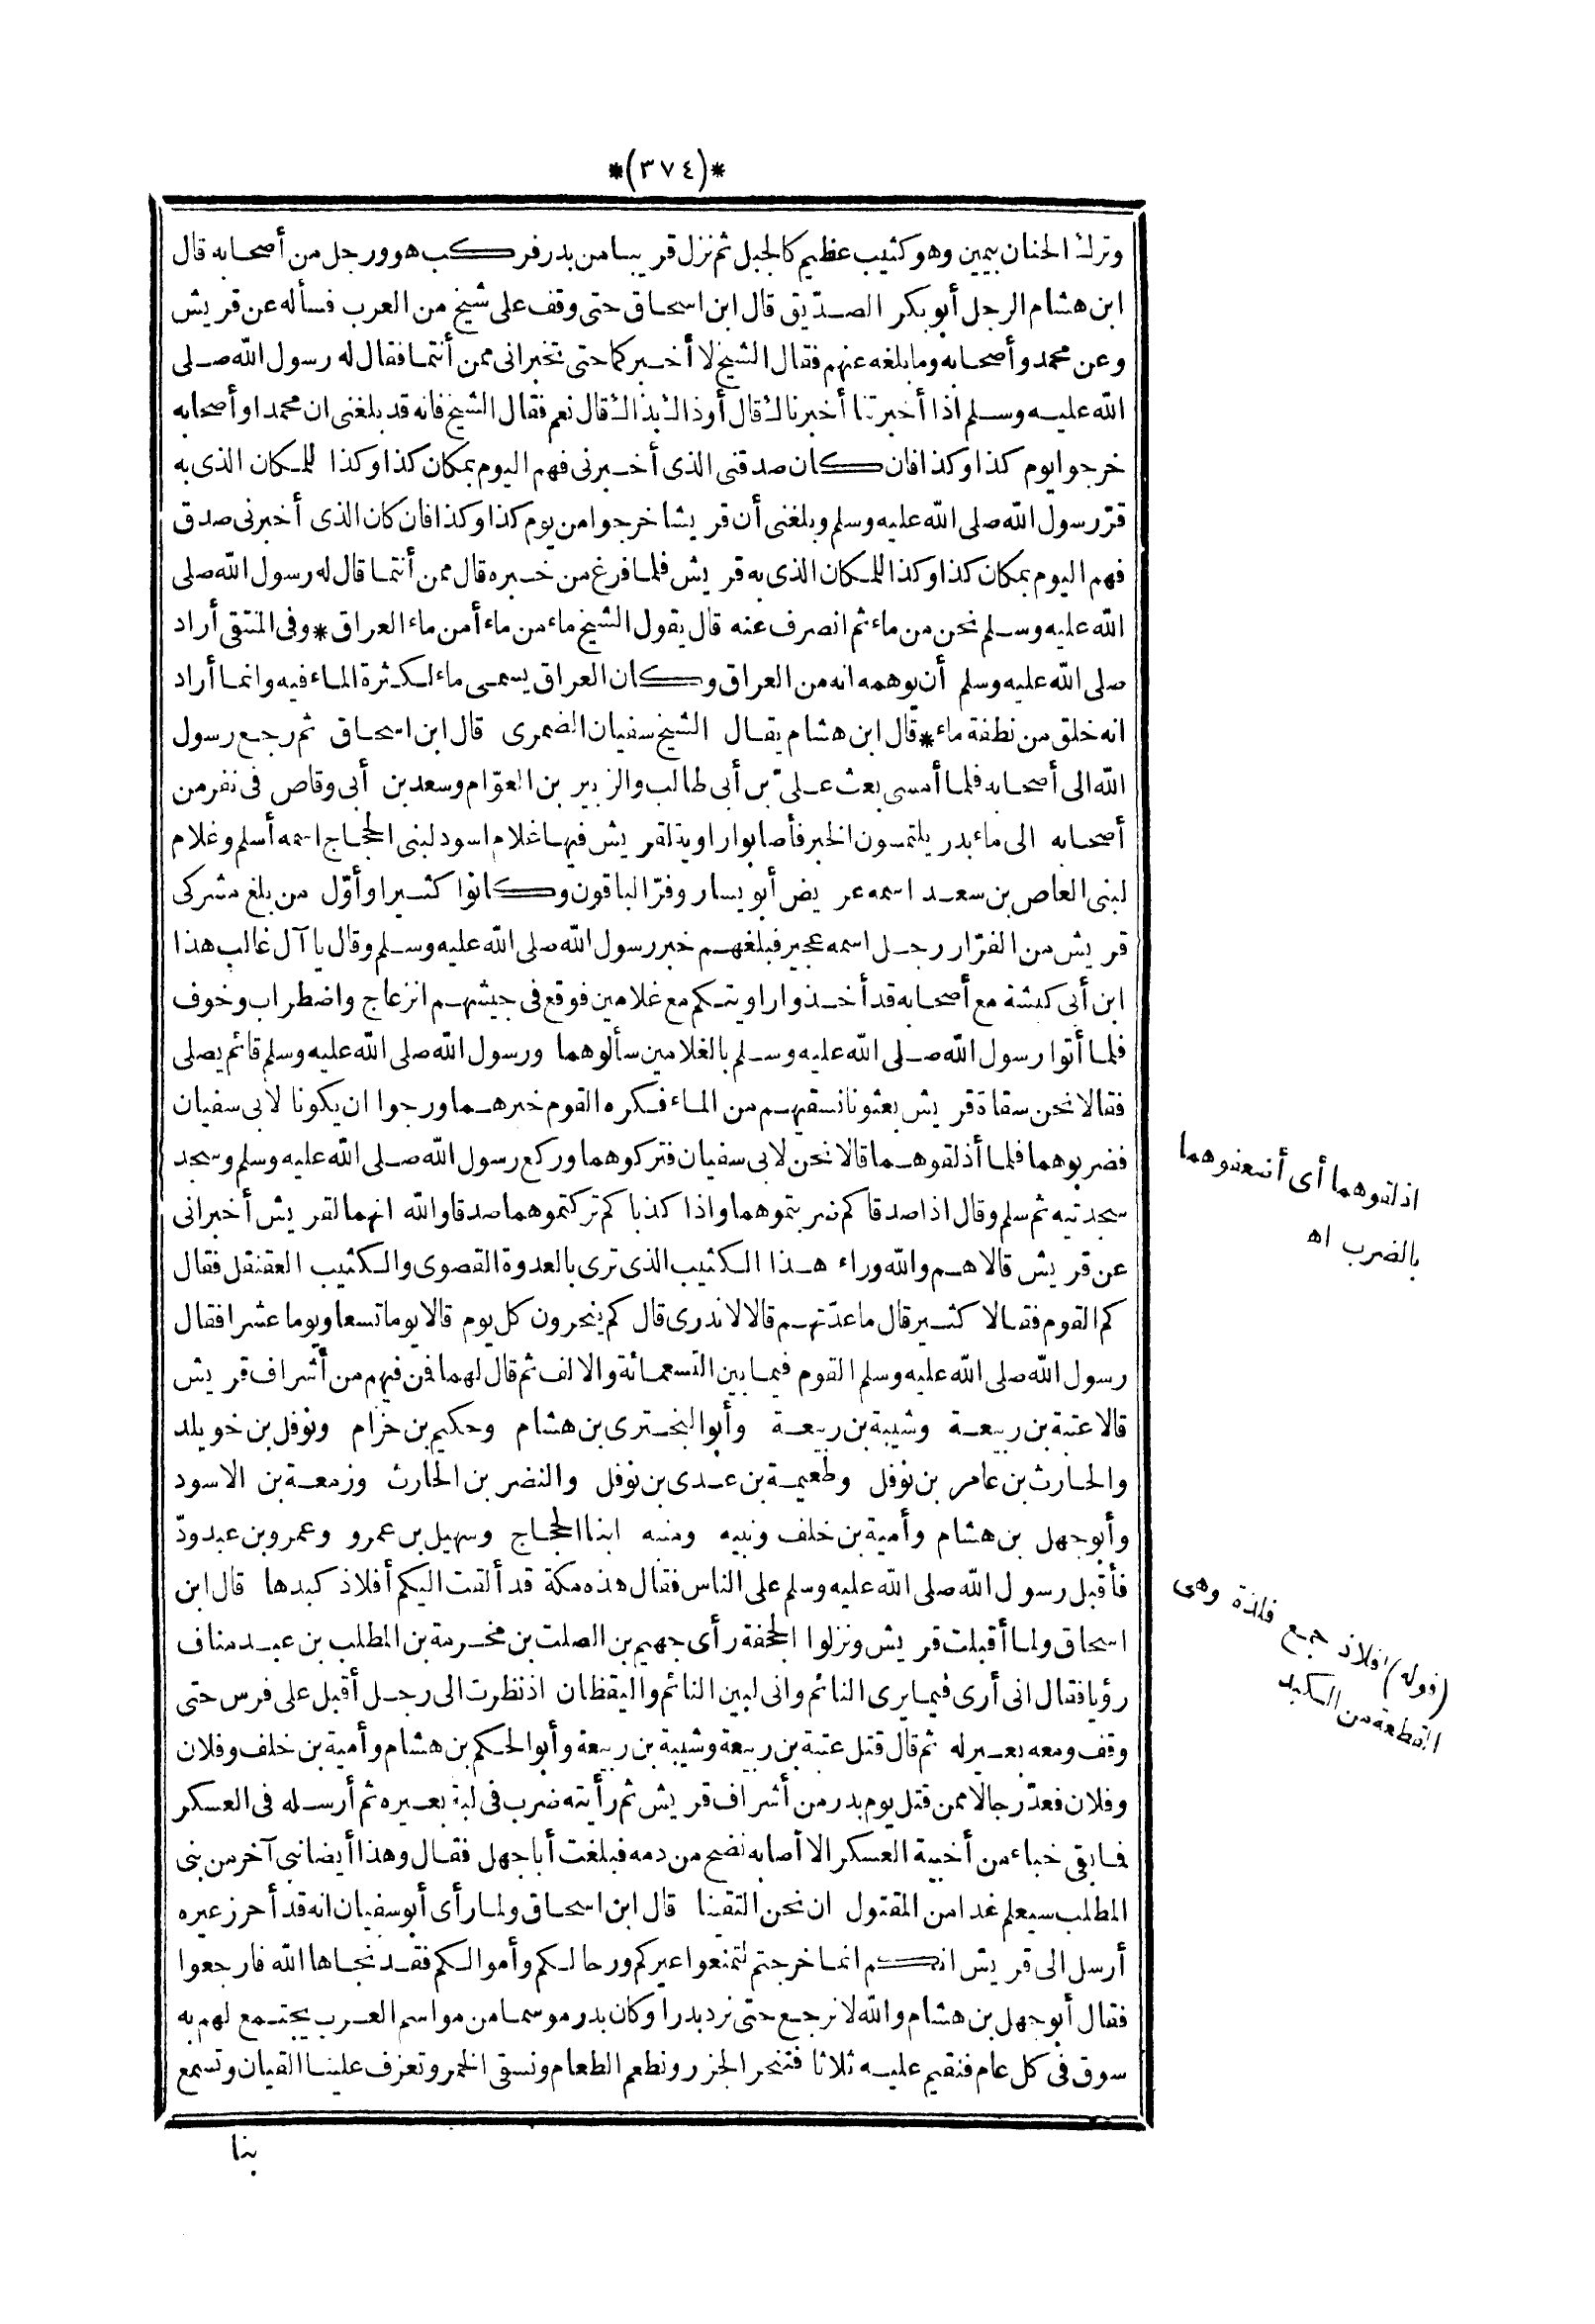 *(٣٧٤)*
وترك الحنان بيمين وهو كثيب عظيم كالجبل ثم نزل قريبا من بدر فركب هو ورجل من أصحابه قال
ابن هشام الرجل أبو بكر الصدّيق قال ابن اسحاق حتى وقف على شيخ من العرب فسأله عن قريش
وعن محمد وأصحابه وما بلغه عنهم فقال الشيخ لا أخبركما حتى تخبرانى ممن أنتما فقال له رسول الله صلى
الله عليه وسلم اذا أخبرتنا أخبرناك قال أوذاك بذاك قال نعم فقال الشيخ فانه قد بلغنى ان محمدا وأصحابه
خرجوا يوم كذا وكذا فان كان صدقنى الذى أخبرنى فهم اليوم بمكان كذا وكذا للمكان الذى به
قرّ رسول الله صلى الله عليه وسلم وبلغنى أن قريشا خرجوا من يوم كذا وكذا فان كان الذى أخبرنى صدق
فهم اليوم بمكان كذا وكذا للمكان الذى به قريش فلما فرغ من خبره قال ممن أنتما قال له رسول الله صلى
الله عليه وسلم نحن من ماء ثم انصرف عنه قال يقول الشيخ ماء من ماء أمن ماء العراق * وفى المنتقى أراد
صلى الله عليه وسلم أن يوهمه انه من العراق وكان العراق يسمى ماء لكثرة الماء فيه وانما أراد
انه خلق من نطفة ماء * قال ابن هشام يقال الشيخ سفيان الضمرى قال ابن اسحاق ثم رجع رسول
الله الى أصحابه فلما أمسى بعث علىّ بن أبى طالب والزبير بن العوّام وسعد بن أبى وقاص فى نفر من
أصحابه الى ماء بدر يلتمسون الخبر فأصابوا راوية لقريش فيها غلام اسود لبنى الحجاج اسمه أسلم وغلام
لبنى العاص بن سعيد اسمه عريض أبو يسار وفرّ الباقون وكانوا كثيرا وأوّل من بلغ مشركى
قريش من الفرّار رجل اسمه عجير فبلغهم خبر رسول الله صلى الله عليه وسلم وقال يا آل غالب هذا
ابن أبى كبشة مع أصحابه قد أخذوا راويتكم مع غلامين فوقع فى جيشهم انزعاج واضطراب وخوف
فلما أتوا رسول الله صلى الله عليه وسلم بالغلامين سألوهما ورسول الله صلى الله عليه وسلم قائم يصلى
فقالا نحن سقاة قريش بعثونا نسقيهم من الماء فكره القوم خبرهما ورجوا ان يكونا لابى سفيان
فضربوهما فلما أذلقوهما قالا نحن لابى سفيان فتركوهما وركع رسول الله صلى الله عليه وسلم وسجد
سجدتيه ثم سلم وقال اذا صدقاكم ضربتموهما واذا كذباكم تركتموهما صدقا والله انهما لقريش أخبرانى
عن قريش قالا هم والله وراء هذا الكثيب الذى ترى بالعدوة القصوى والكثيب العقنقل فقال
كم القوم فقالا كثير قال ما عدّتهم قالا لا ندرى قال كم ينحرون كل يوم قالا يوما تسعا ويوما عشرا فقال
رسول الله صلى الله عليه وسلم القوم فيما بين التسعمائة والالف ثم قال لهما فمن فيهم من أشراف قريش
قالا عتبة بن ربيعة وشيبة بن ربيعة وأبو البخترى بن هشام وحكيم بن خزام ونوفل بن خويلد
والحارث بن عامر بن نوفل وطعيمة بن عدى بن نوفل والنضر بن الحارث وزمعة بن الاسود
وأبو جهل بن هشام وأمية بن خلف ونبيه ومنبه ابنا الحجاج وسهيل بن عمرو وعمرو بن عبدودّ
فأقبل رسول الله صلى الله عليه وسلم على الناس فقال هذه مكة قد ألقت اليكم أفلاذ كبدها قال ابن
اسحاق ولما أقبلت قريش ونزلوا الجحفة رأى جهيم بن الصلت بن مخرمة بن المطلب بن عبد مناف
رؤيا فقال انى أرى فيما يرى النائم وانى لبين النائم واليقظان اذ نظرت الى رجل أقبل على فرس حتى
وقف ومعه بعير له ثم قال قتل عتبة بن ربيعة وشيبة بن ربيعة وأبو الحكم بن هشام وأمية بن خلف وفلان
وفلان فعدّ رجالا ممن قتل يوم بدر من أشراف قريش ثم رأيته ضرب فى لبة بعيره ثم أرسله فى العسكر
فما بقى خباء من أخبية العسكر الا أصابه نضح من دمه فبلغت أبا جهل فقال وهذا أيضا نبى آخر من بنى
المطلب سيعلم غدا من المقتول ان نحن التقينا قال ابن اسحاق ولما رأى أبو سفيان انه قد أحرز عيره
أرسل الى قريش انكم انما خرجتم لتمنعوا عيركم ورحالكم وأموالكم فقد نجاها الله فارجعوا
فقال أبو جهل بن هشام والله لا نرجع حتى نرد بدرا وكان بدر موسما من مواسم العرب يجتمع لهم به
سوق فى كل عام فنقيم عليه ثلاثا فننحر الجزر ونطعم الطعام ونسقى الخمر وتعزف علينا القيان وتسمع
بنا
اذلقوهما أى أضعفوهما
بالضرب اه
(قوله) افلاذ جمع فلذة وهى
القطعة من الكبد